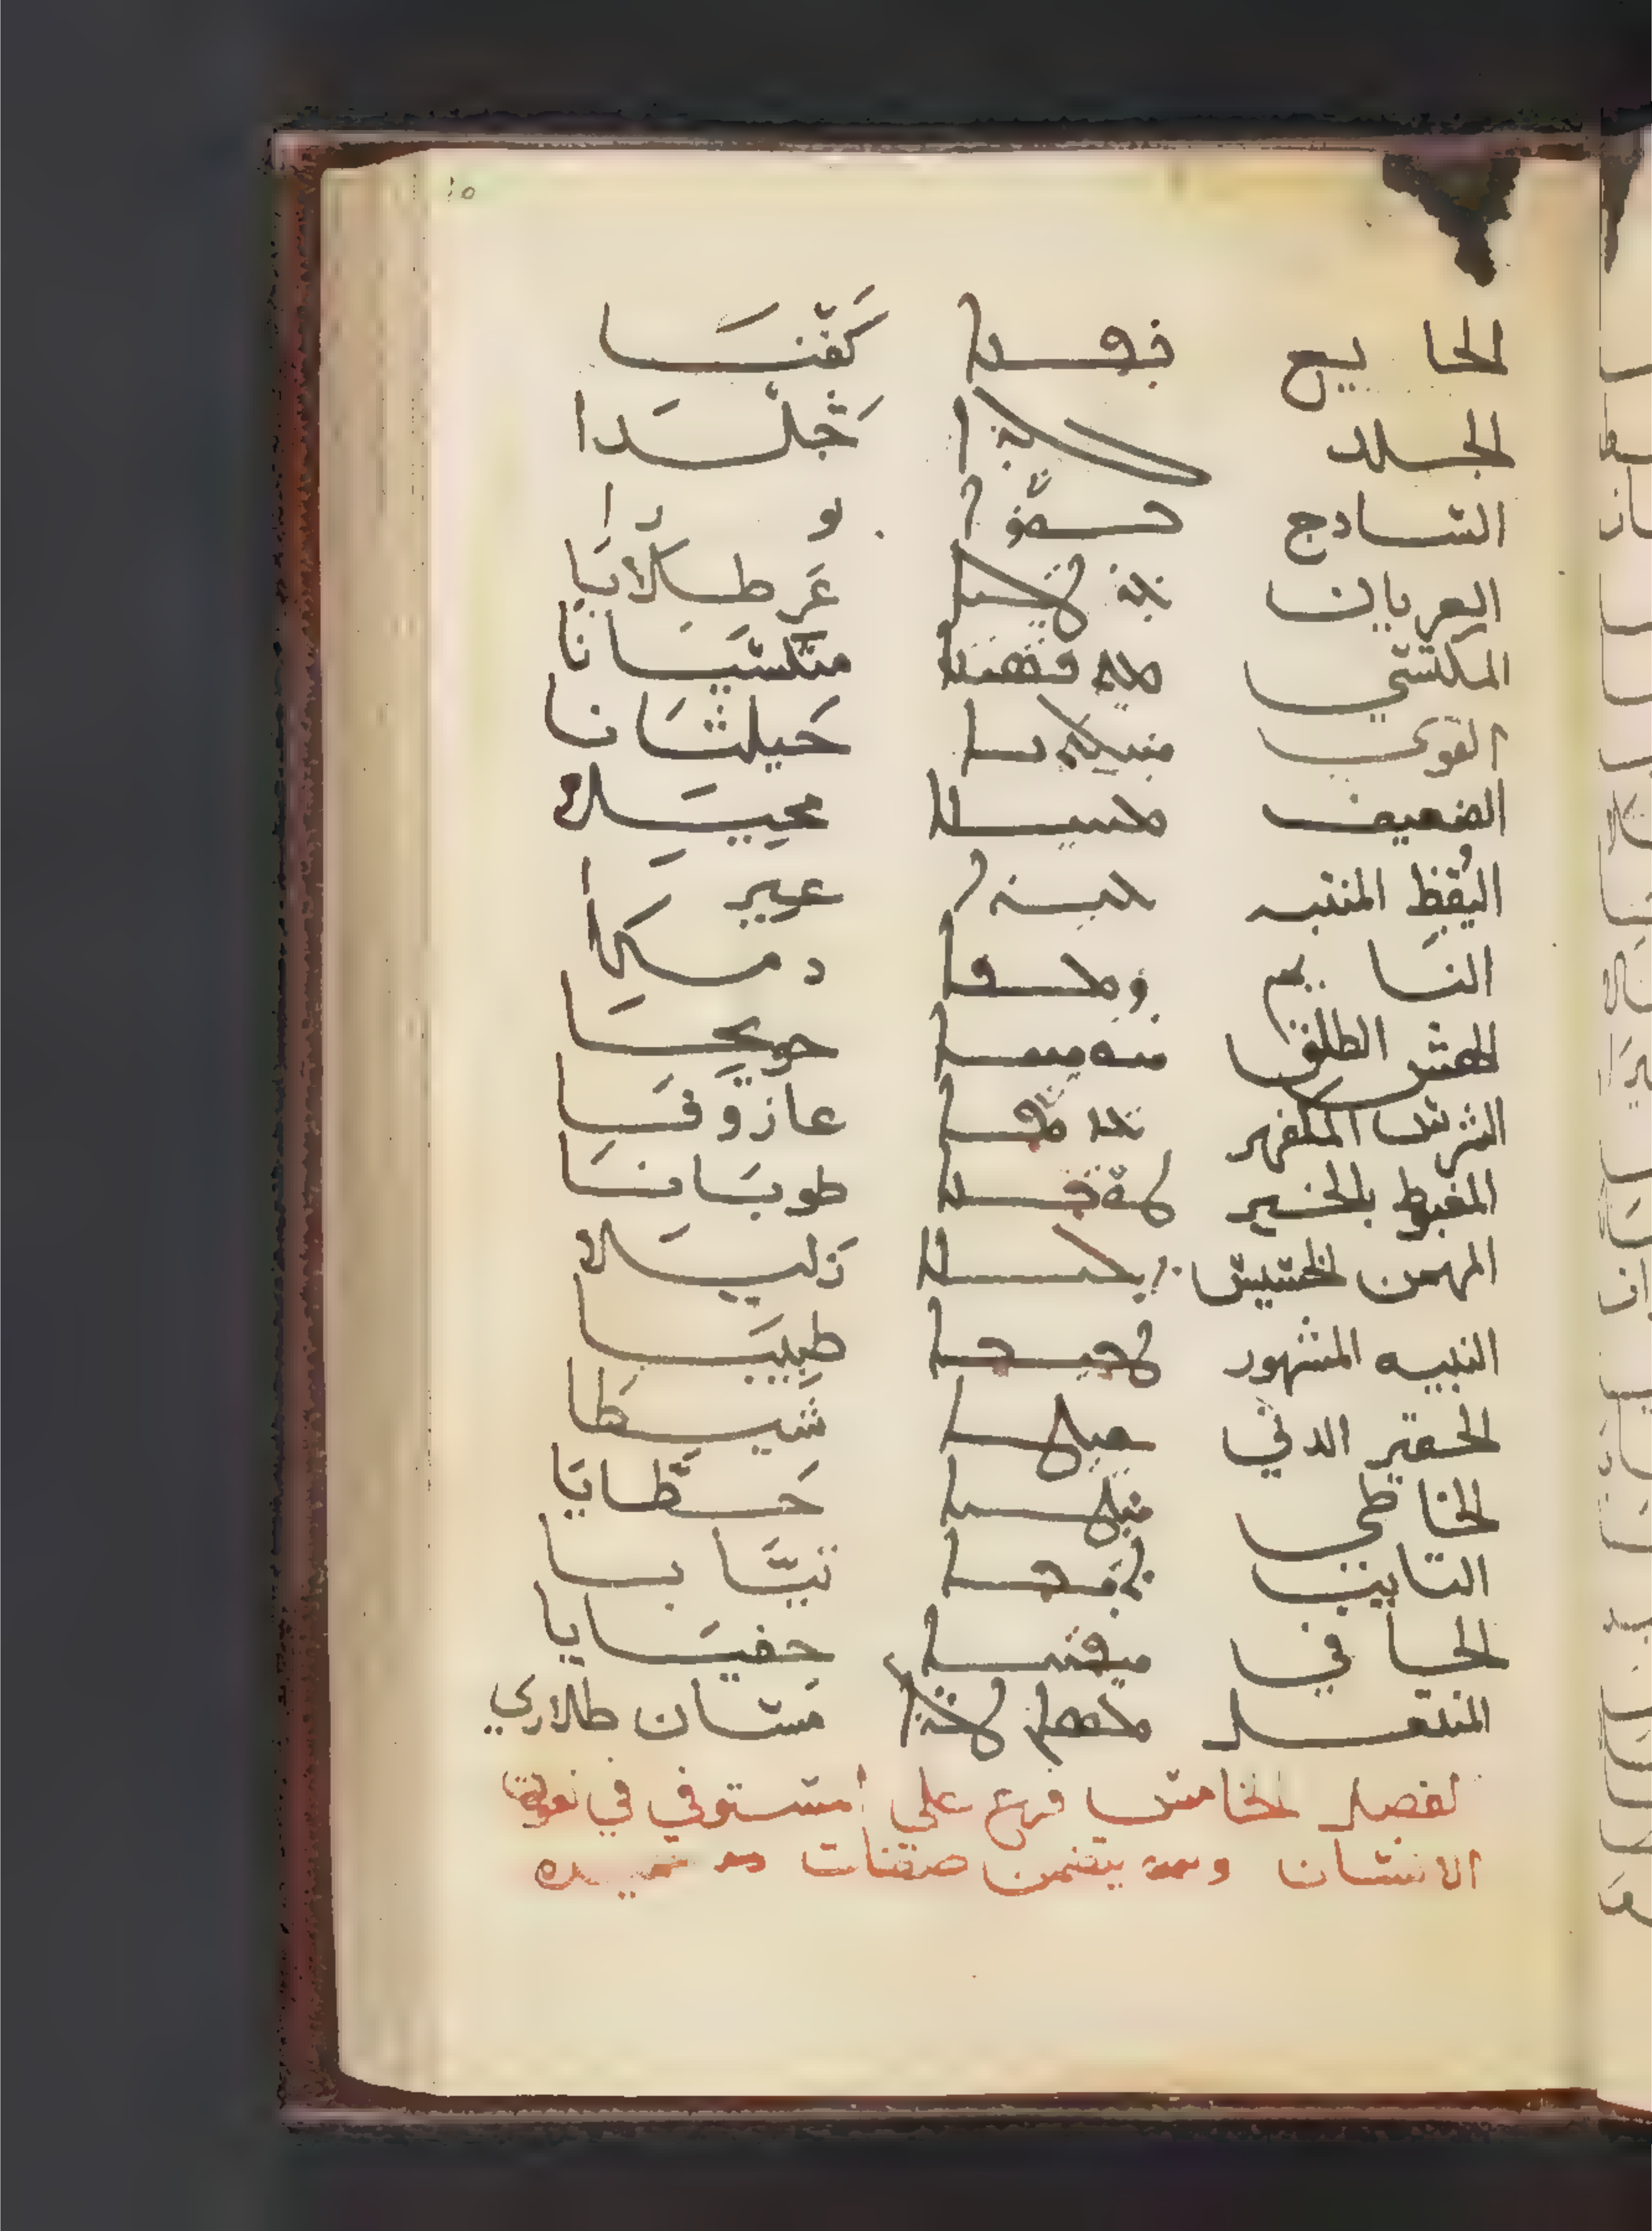 الجا يع ܟܦܢܐ كَفّنَا
الجلد ܓܠܕܐ جَلْدَا
السادج
العريان ܥܪܛܠܝܐ عَرطلَايَا
المكتسي ܡܬܟܣܝܢܐ متكسيَانَا
القوي ܚܝܠܬܢܐ حَيلتَانا
الضعيف ܡܚܝܠܐ محيلا
اليُقظ المنتبه ܥܝܪܐ عير ا
النا يم ܕܡܟܐ دمكا
الهش الطلق ܚܘܚܝܐ
الشرس المكفهر ܥܙܘܩܐ عازوقَا
المغبوط بالخير ܛܘܒܢܐ طوبَانَا
المهين الخسيس ܙܠܝܠܐ زَليلا
النبيه المشهور ܛܒܝܒܐ طبيبَا
الحقير الدني ܫܝܛܐ شيطَا
الخاطي ܚܛܝܐ حَطايَا
التايب ܬܝܒܐ تيَّابا
الحافي ܚܦܝܝܐ حفيَايا
المنتعل مسَان طلاري
لفصل الخامس فرع علي امستوفي في نعوت
الانسان يتضمن صفات